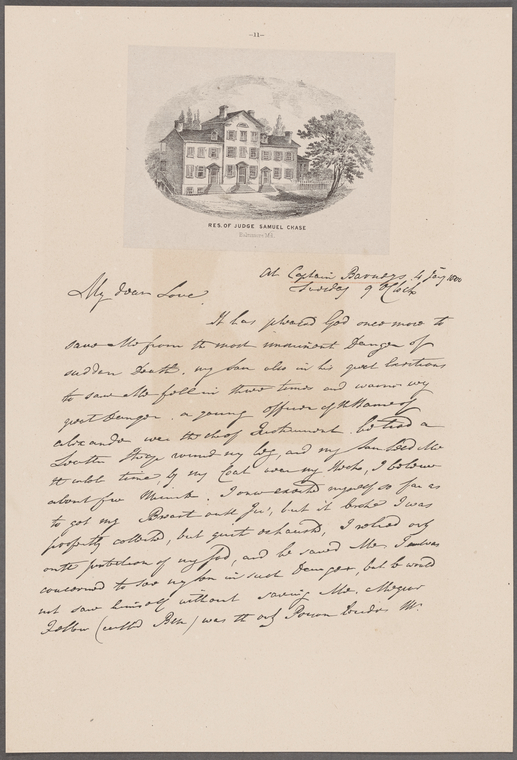 -11-
RES. OF JUDGE SAMUEL CHASE
Baltimore Md.
At Captain Barneys, 4 Jany 1800
Sunday 9 OClock
My dear Love.
It has pleased God once more to
save Me from the most imminent Danger of
sudden Death. my Son also in his great Exertions
to save Me fell in three times and was in very
great Danger. a young officer of the Name of
Alexander was the chief Instrument. he tied a
Leather Strap round my leg, and my Son held Me
the whole time, by my Coat near my Neck, I believe
about five Minutes. I once exerted myself so far as
to get my Breast on the Ice, but it broke I was
properly collected, but quite exhausted, I relied only
on the protection of my God, and he saved Me. I was
concerned to see my son in such Danger, but he would
not save himself without saving Me. My poor
Fellow (called Ben) was the only Person besides Mr.